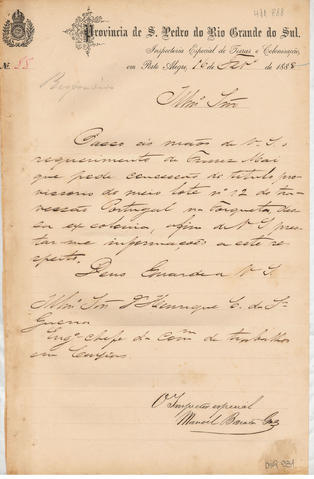 Provincia de S. Pedro do Rio Grande do Sul.
Inspectoria Especial de Terras e Colonisação,
Nº 55
em Porto Alegre, 16 de Fevº de 1888
Respondido
Illmº Snr
Passo ás mãos de V. S. o
requerimento de Franz Mai
que pede concessão de titulo pro-
visorio do meio lote nº 22 do tra-
vessão Portugal na Forqueta, dessa
ex colonia, afim de V. S. pres-
tar-me informações a este res-
peito.
Deus Guarde a V. S.
Illmº Snr Dr Henrique C. da Sª
Guerra
Engº chefe da comm de trabalhos
em Caxias
O Inspector especial
Manoel Barata